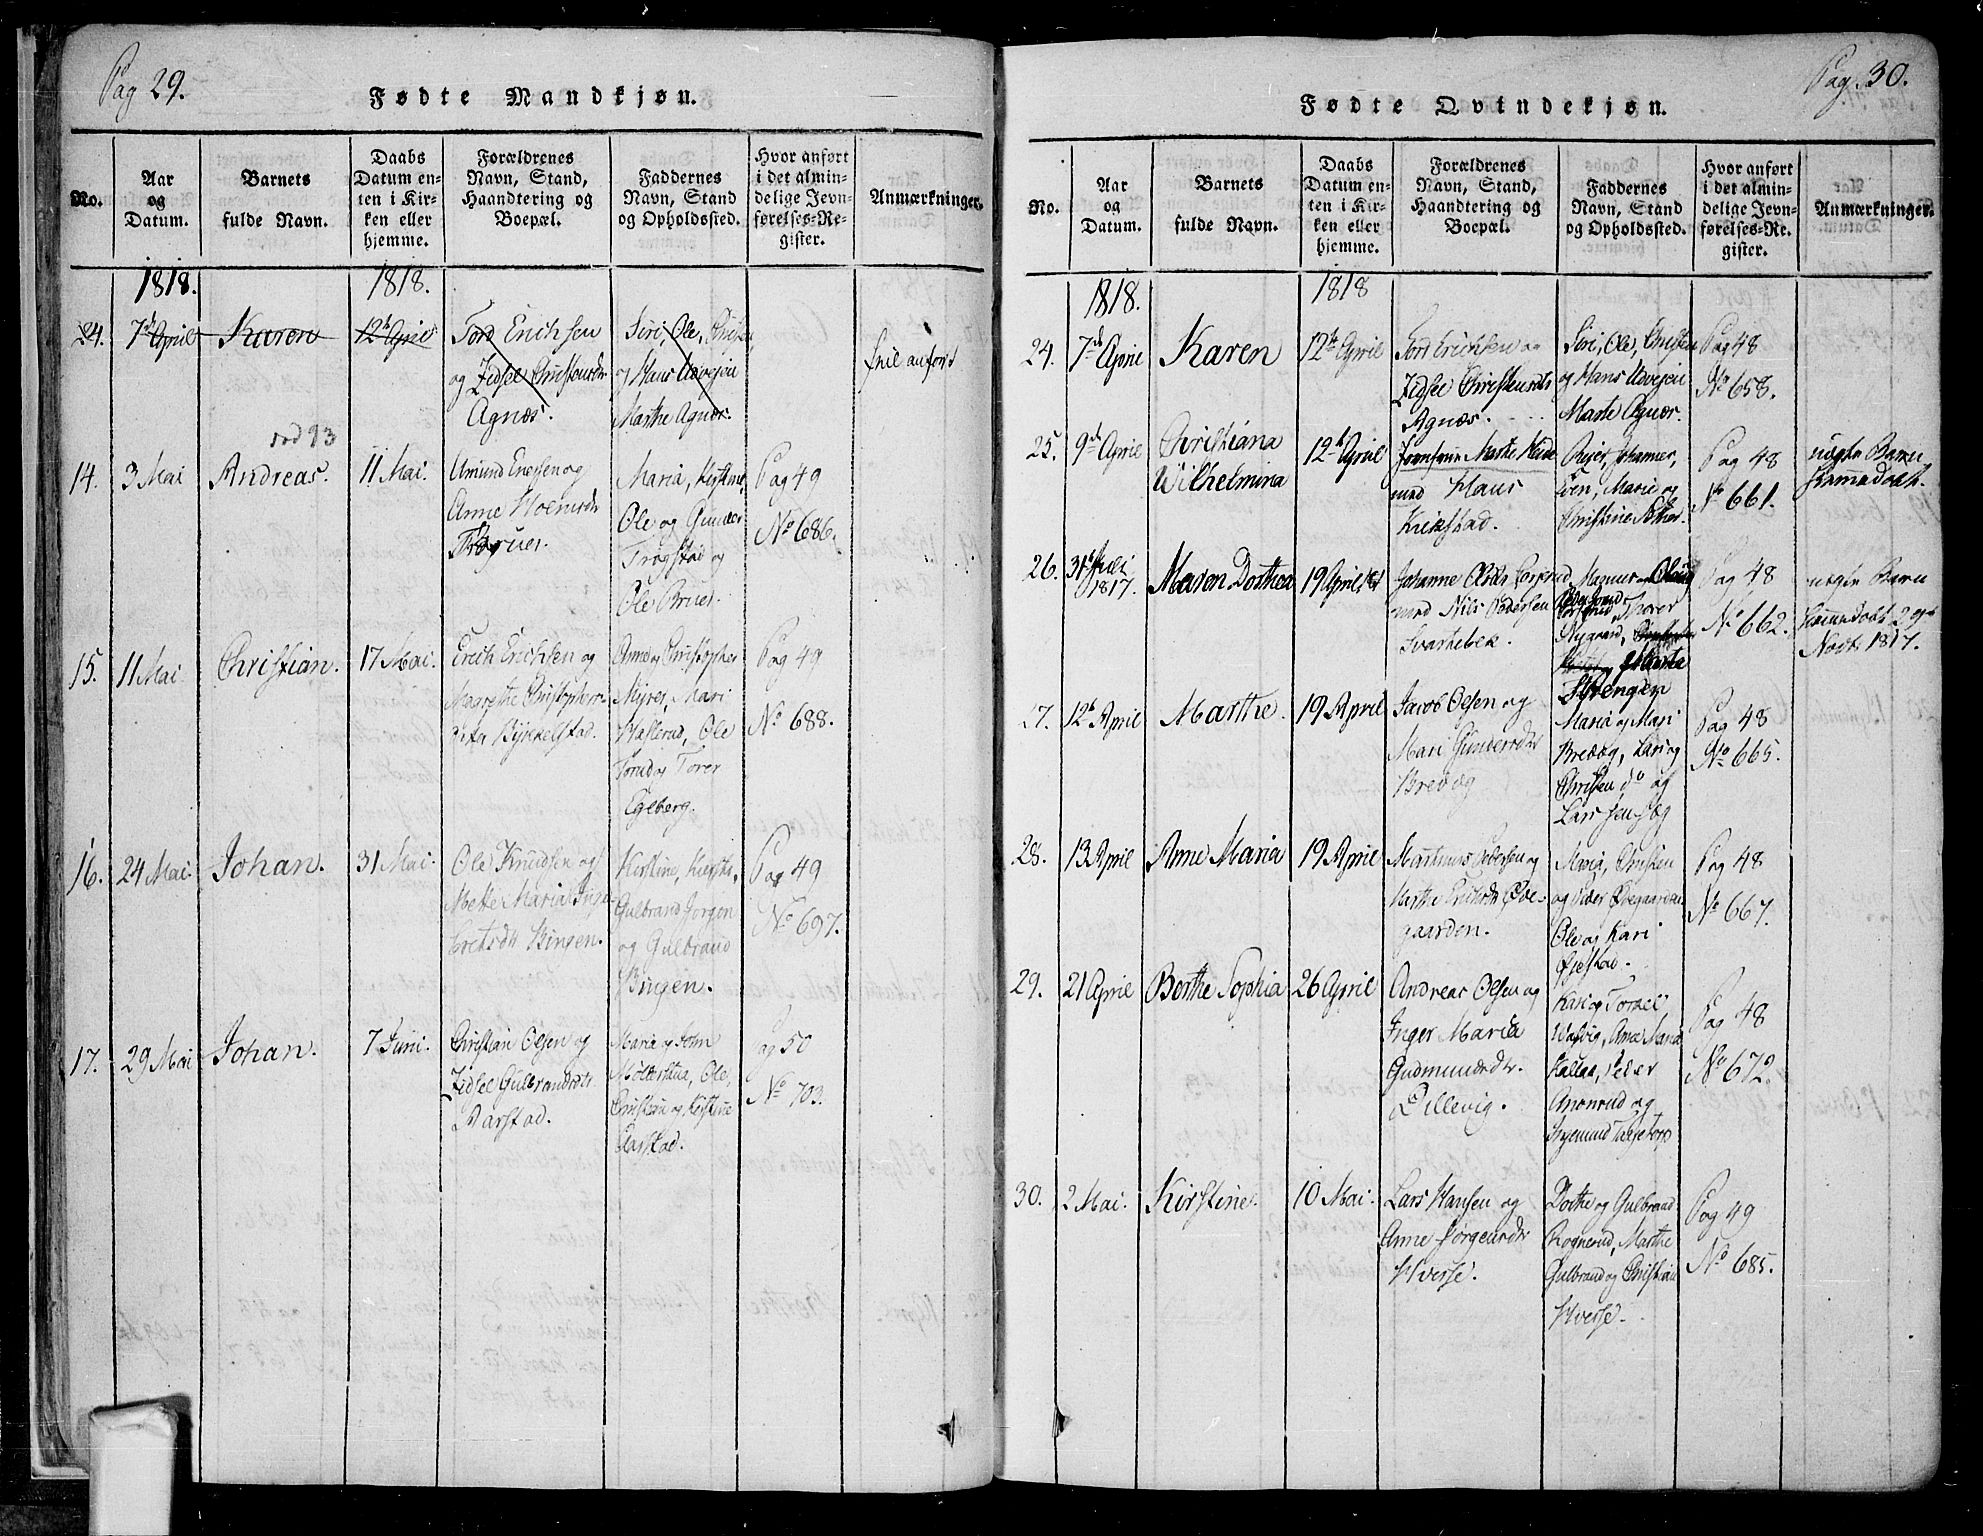 Pag 29.
Fødte Mandkjøn.
No.
Aar
og
Datum.
Barnets
fulde Navn.
Daabs
Datum en-
ten i Kir-
ken eller
hjemme.
Forældrenes
Navn, Stand,
Haandtering og
Boepæl.
Faddernes
Navn, Stand
og Opholdssted.
Hvor anført
i det almin-
delige Jevn-
førelses-Re-
gister.
Anmærkninger.
1818.
1818.
24.
7de April
Karen
12te April
Tord Erichsen
og Zidsel Christensdr
Agnæs.
Siri, Ole, Christen
og Hans Udvejen
Marthe Agnæs.
feil anført
14.
3 Mai
Andreas.
11 Mai.
Amund Enersen og
Anne
Maria, Kirstine,
Ole og Gunder
Trogstad og
Ole Bruer.
Pag 49
No 686.
15.
11 Mai
Christian.
17 Mai.
Erich Erichsen og
Magrethe Christophers-
Bykkelstad.
Anne og Christopher
Myrer, Mari
Haslerud, Ole
Torud og Torer
Egeberg.
Pag 49
No 688.
16.
24 Mai.
Johan.
31 Mai.
Ole Knudsen og
Mette Maria Inge-
bretsdr Bingen.
Kirstine,
Gulbrand Jørgen
og Gulbrand
Bingen.
Pag 49
No 697.
17.
29 Mai
Johan.
7 Juni.
Christian Olsen og
Zidsel Gulbrandsdr.
Aarstad.
Maria og John
Møllerstua, Ole,
Christian og Kirstine
Aarstad.
Pag 50
No 703.
Pag. 30.
Fødte Qvindekjøn.
No.
Aar
og
Datum.
Barnets
fulde Navn.
Daabs
Datum en-
ten i Kir-
ken eller
hjemme.
Forældrenes
Navn, Stand,
Haandtering og
Boepæl.
Faddernes
Navn, Stand
og Opholdssted.
Hvor anført
i det almin-
delige Jevn-
førelses-Re-
gister.
Anmærkninger.
1818.
1818
24.
7de April
Karen
12te April
Tord Erichsen og
Zidsel Christensdr
Agnæs.
Siri, Ole, Christen
og Hans Udvejen
Marte Agnæs.
Pag 48
No 658.
25.
9de April
Christiana
Wilhelmina
12te April
Marte
med Hans
Kirkstad.
Rejer, Johannes,
Even, Marie og
Christine
Pag 48
No 661.
uægte Barn
hjemmedøbt.
26.
31te Juli
1817.
Maren Dorthea
19 April
Johanne
med Nils Pedersen
Svartebek.
Torer
Nygaard,
Marta
Strengen
Pag 48
No 662.
uægte Barn
hjemmedøbt 2
Novbr 1817.
27.
12te April
Marthe.
19 April
Jacob Olsen og
Mari Gundersdr
Bredeg
Maria og Mari
Bredeg, Lars og
Christen do og
Lars
Pag 48
No 665.
28.
13 April
Anne Maria
19 April
Martinus Pedersen og
Marthe Erichsdr Øde-
gaarden.
Maria, Christen
og Peder Ødegaarden
Ole og Kari
Pag 48
No 667.
29.
21 April
Berthe Sophia
26 April
Andreas Olsen og
Inger Maria
Gudmundsdr.
Lillevig.
Kari og Torkel
Walvig, Anne Maria
Kallaa, Peder
Anonrud og
Pag 48
No 672.
30.
2 Mai.
Kirstine.
10 Mai.
Lars Hansen og
Anne Jørgensdr
Hverse.
Dorthe og Gulbrand
Rognerud, Marthe
Gulbrand og Christian
Hverse.
Pag 49
No 685.